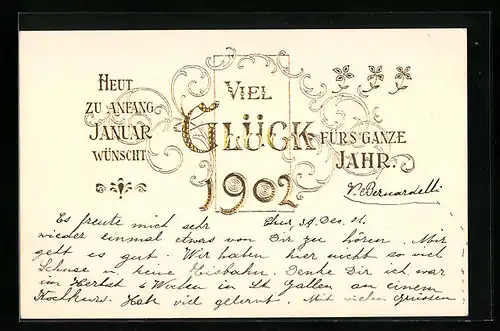 HEUT
ZU ANFANG
JANUAR
WÜNSCHT
VIEL
GLÜCK
1902
FÜRS GANZE
JAHR.
V. Bernardelli
Chur, 30. Dec.
Es freute mich sehr
wieder einmal etwas von Dir zu hören. Mir
geht es gut. Wir haben hier nicht so viel
Schnee u. keine Eisbahn. Denke Dir ich war
im Herbst 6 Wochen in St. Gallen an einem
Kochkurs. Habe viel gelernt. Mit vielen Grüssen